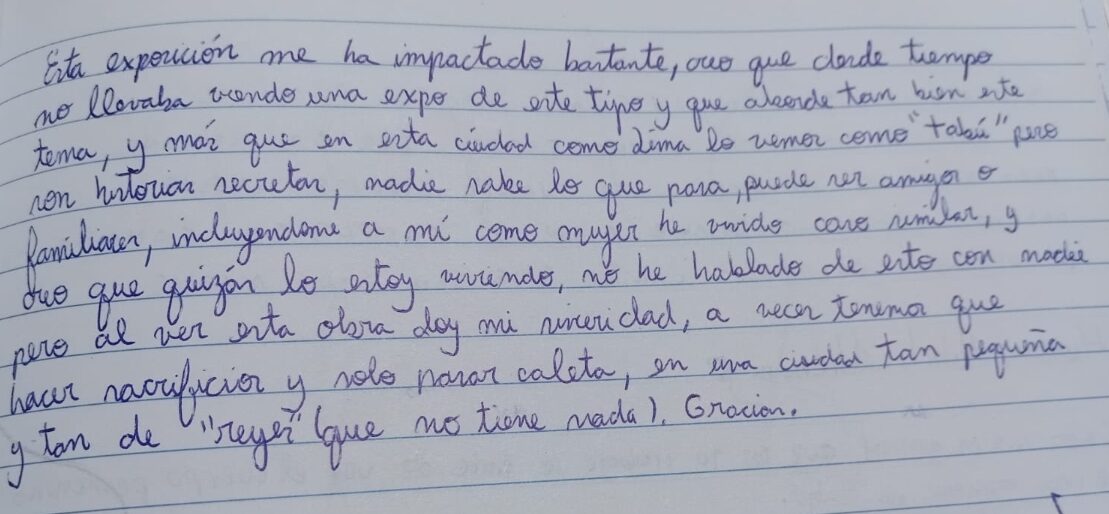 Esta exposición me ha impactado bastante, creo que desde tiempo
no llevaba viendo una expo de este tipo y que aborde tan bien este
tema, y más que en esta ciudad como Lima lo vemos como "tabú" pero
son historias secretas, nadie sabe lo que pasa, puede ser amigos o
familiares, incluyendome a mí como mujer he vivido caso similar, y
creo que quizás lo estoy viviendo, no he hablado de esto con nadie
pero al ver esta obra doy mi sinceridad, a veces tenemos que
hacer sacrificios y solo pasar caleta, en una ciudad tan pequeña
y tan de "reyes" (que no tiene nada). Gracias.